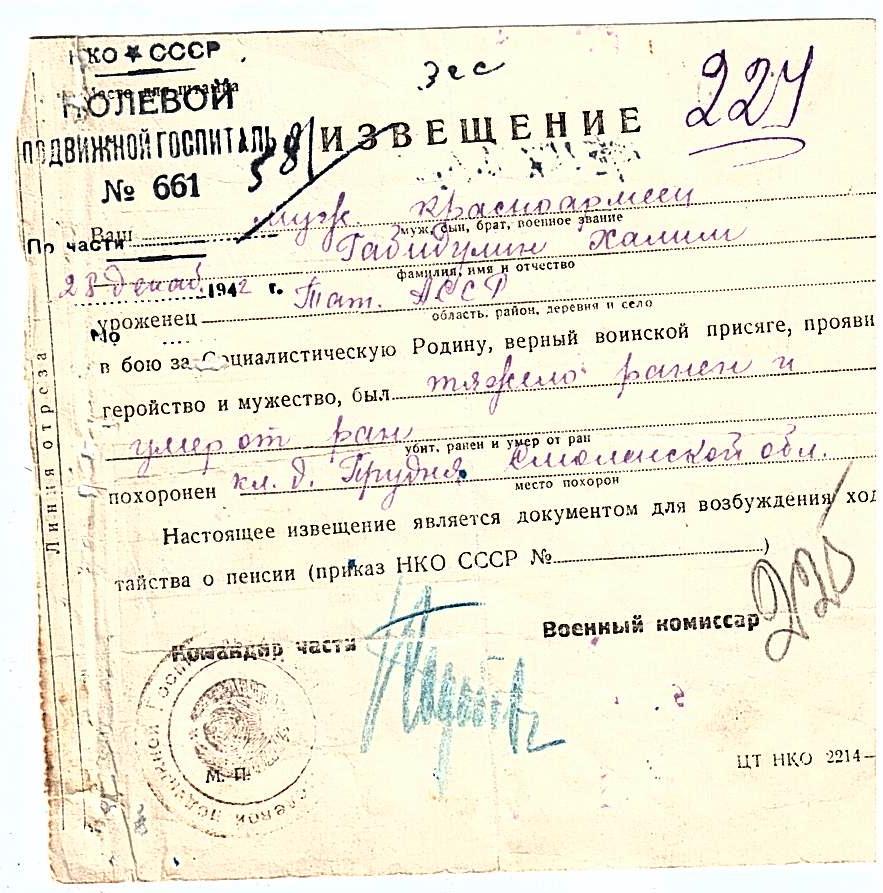 НКО ★ СССР
Место для штампа
ПОЛЕВОЙ
ПОДВИЖНОЙ ГОСПИТАЛЬ
№ 661
58/
227
ИЗВЕЩЕНИЕ
Ваш муж красноармеец
муж, сын, брат, военное звание
По части
Габидулин Халим
фамилия, имя и отчество
28 декаб. 1942 г.
уроженец Тат. АССР
область, район, деревня и село
№
в бою за Социалистическую Родину, верный воинской присяге, прояви
геройство и мужество, был тяжело ранен и
умер от ран
убит, ранен и умер от ран
похоронен кл. д. Прудня Смоленской обл.
место похорон
Настоящее извещение является документом для возбуждения ход
тайства о пенсии (приказ НКО СССР № )
225
Командир части
Военный комиссар
М. П.
ЦТ НКО 2214—
Линия отреза